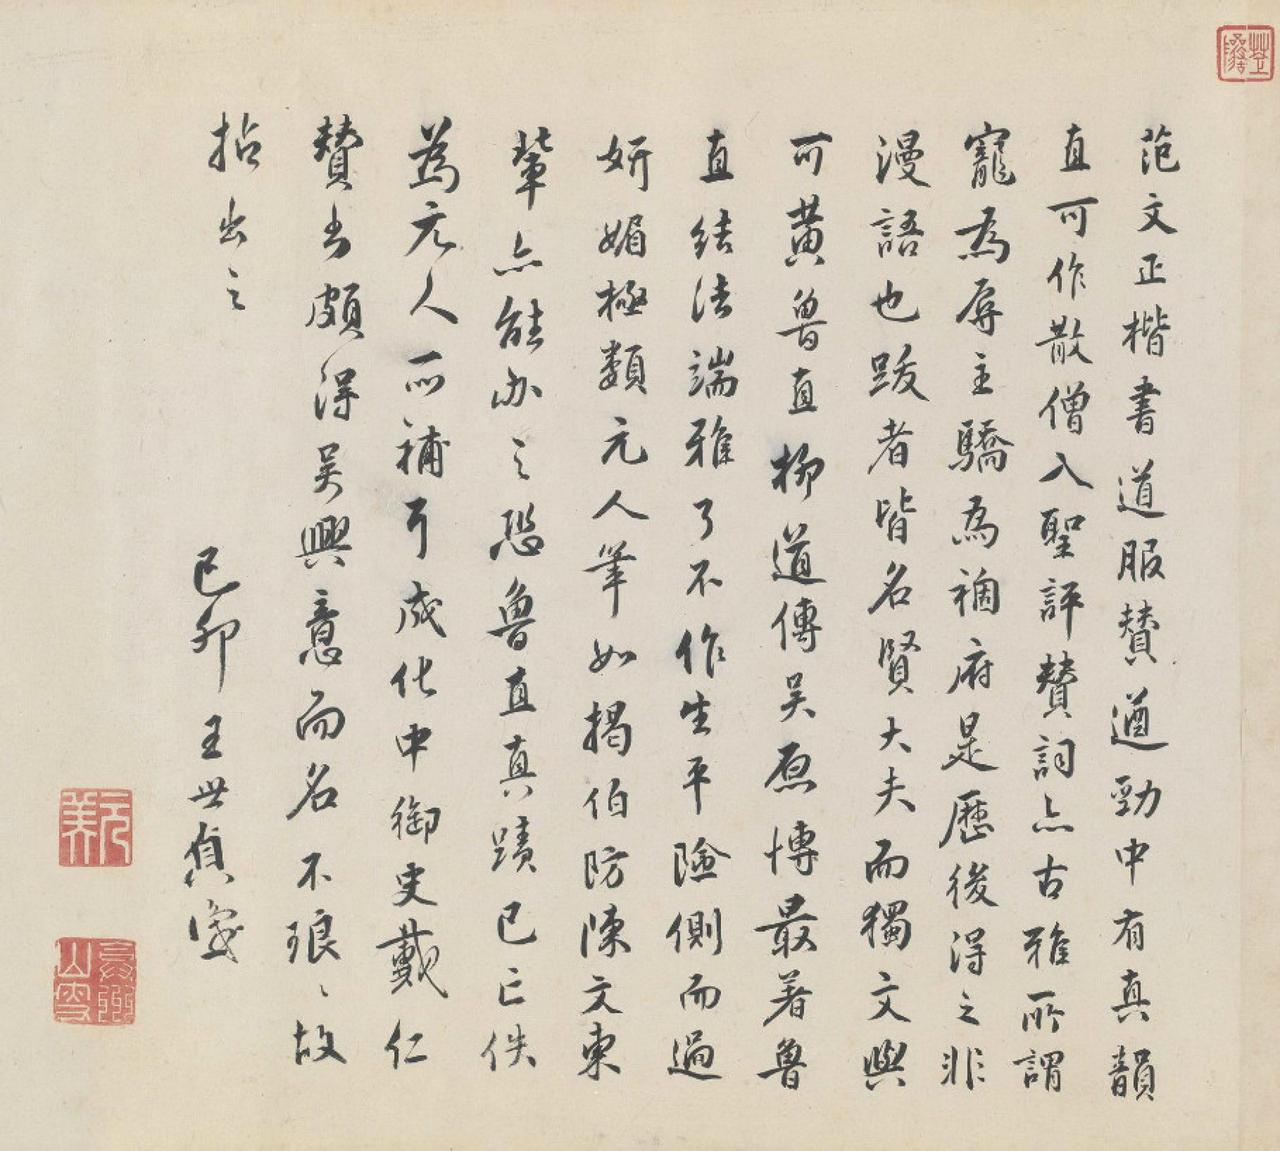 范文正楷書道服贊遒勁中有真韻
直可作散僧入聖評贊詞亦古雅所謂
寵為辱主驕為禍府是歷後得之非
漫語也跋者皆名賢大夫而獨文與
可黃魯直柳道傳吳原博最著魯
直結法端雅了不作生平險側而過
妍媚極類元人筆如揭伯防陳文東
輩亦能辦之恐魯直真蹟已亡佚
為元人所補耳成化中御史戴仁
贊書頗得吳興意而名不琅琅故
拈出之
己卯王世貞識